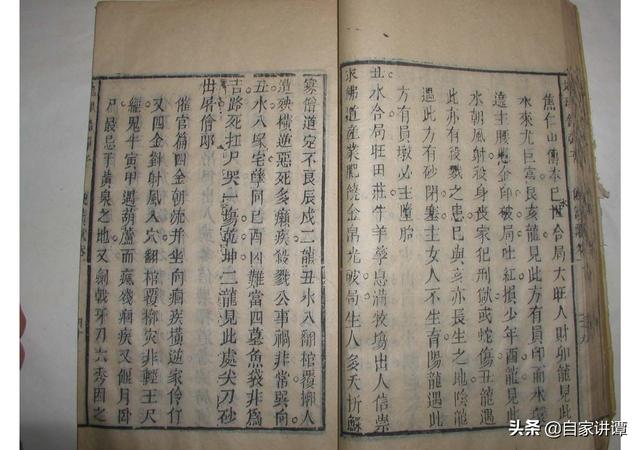 焦仁山傳本巳丑合局大旺人財卯龍見此
水來尤巨富艮亥龍見此方有員印而水
遶主腰懸金印破局吐紅損少年酉龍見此
水朝風射殺身喪家犯刑獄或蛇傷丑龍遇
此亦有殺戮之患巳與亥亦長生之地陰龍
遇此方有砂閉塞主女人不生育陽龍遇此
方有員墩必主墮胎
丑水合局旺田莊牛羊孳息滿牧場出人信崇
求佛道產業肥饒金帛光破局生人多夭折
寡僧道定不良辰戍二龍丑水入翻棺覆槨人
遭殃橫逆惡死多癩疾殺戮公事禍非常巽向
丑水八塚宅孽巳酉凶難當四墓魚袋非爲
吉路死扛尸哭一場乾坤二龍見此處尖刀砂
出屠儈郎
催官篇四金朝流并坐向痼疾橫逆家伶仃
又四金斜射風入穴翻棺覆槨災非輕王尺
經鬼牛寅甲遇葫蘆而瘋殘痼疾又偃月臥
尸最忌于黃泉之地又劍戟牙刀六秀因之
头条 @自家讲谭